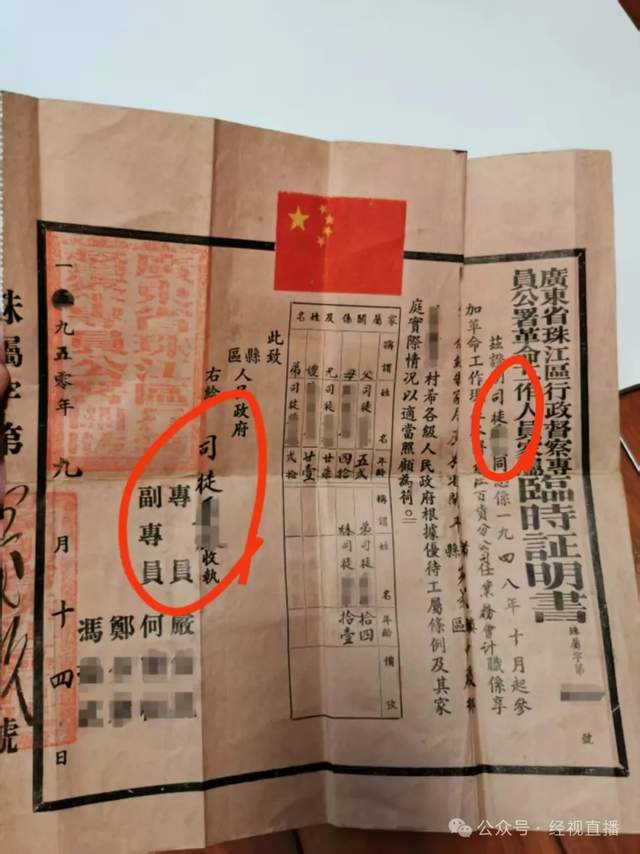 廣東省珠江區行政督察專
員公署革命工作人員家屬
臨時証明書
珠屬字第 號
茲證明司徒 同志係一九四八年十月起參
加革命工作現 江百貨分公司任業務會計職係享
縣 區
村希各級人民政府根據優待工屬條例及其家
庭實際情況以適當照顧為荷。
家屬關係及姓名
稱謂 姓名 年齡
父 司徒 五弍
母 四拾
兄 司徒 廿柒
嫂 廿壹
弟 司徒 弍拾
稱謂 姓名 年齡
弟 司徒 拾四
妹 司徒 拾壹
備攷
此致
縣
區 人民政府
右給 司徒 收執
專員 嚴
副專員 何
鄭
馮
廣東省珠江區行政督察專員公署印
一九五零年九月十四日
珠屬字第 號
公众号·经视直播